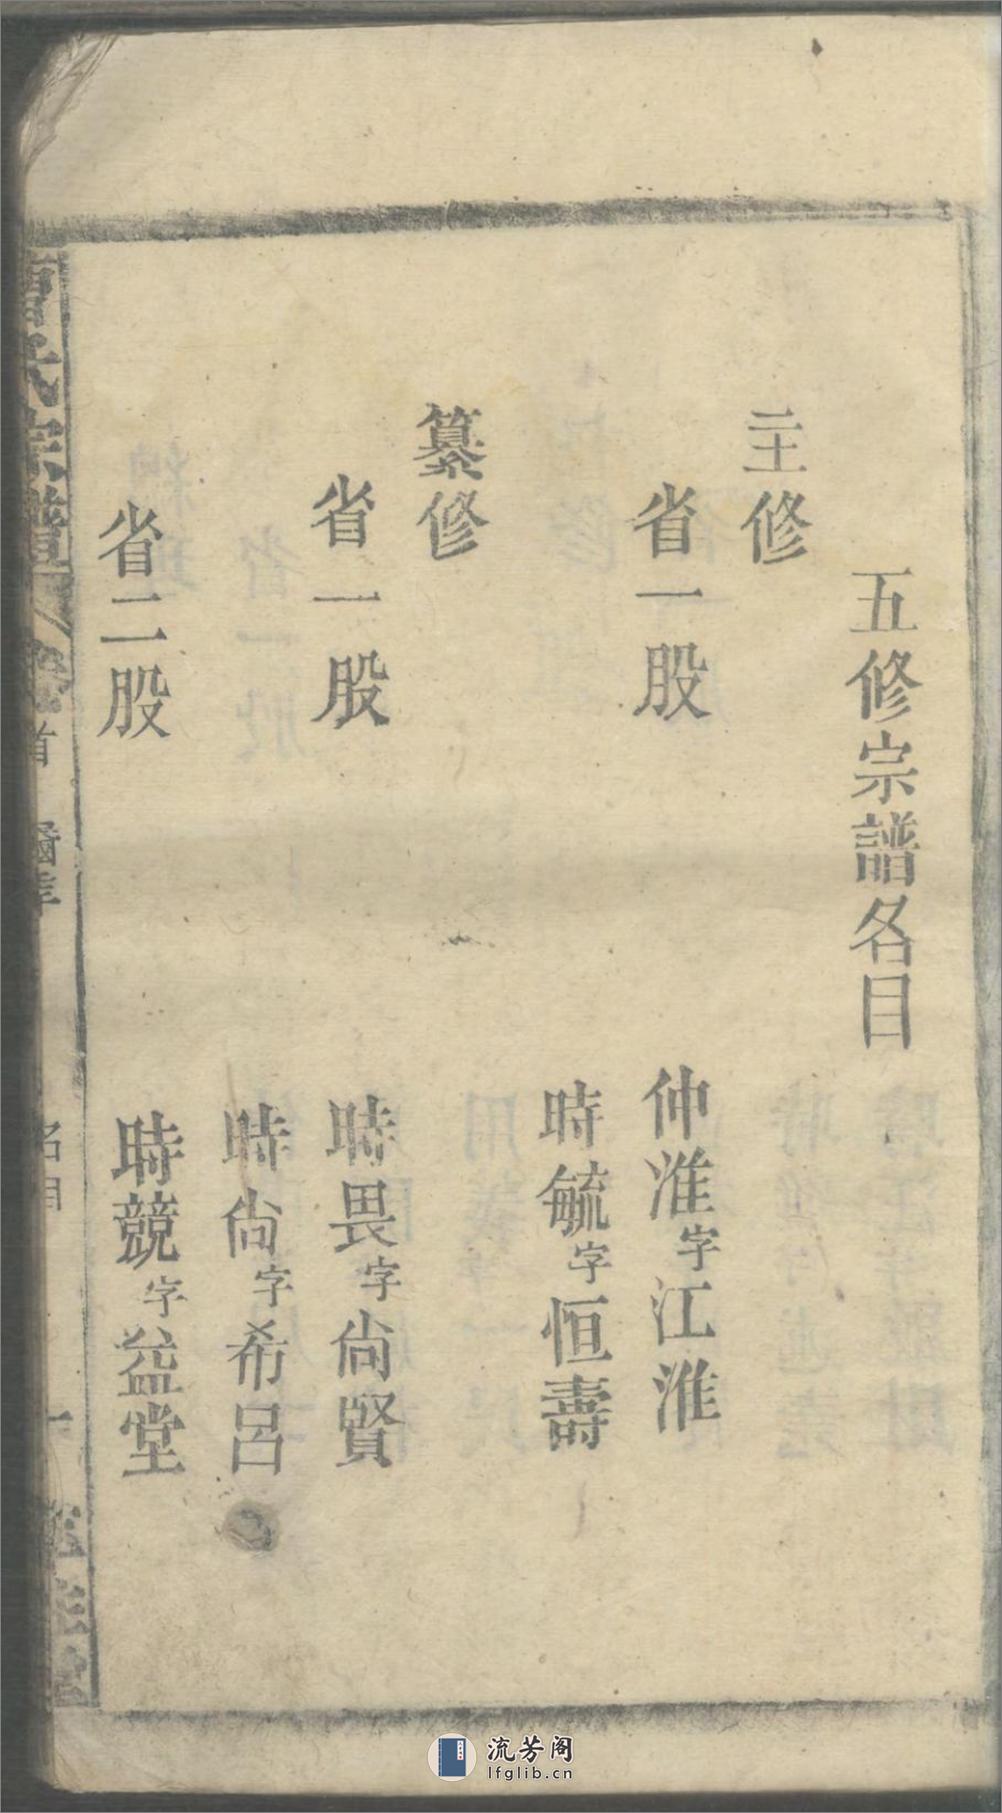 五修宗譜名目
主修
省一股 仲淮字江淮
時毓字恒壽
纂修
省一股 時畏字尙賢
時尙字希呂
省二股 時競字益堂
氏宗譜 卷首 名目 一
流芳阁
lfglib.cn